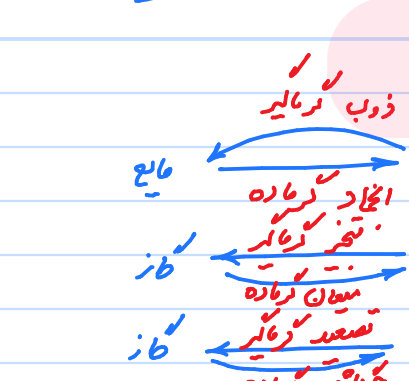 ذوب گرماگیر
مایع
انجماد گرماده
تبخیر گرماگیر
گاز
میعان گرماده
تصعید گرماگیر
گاز